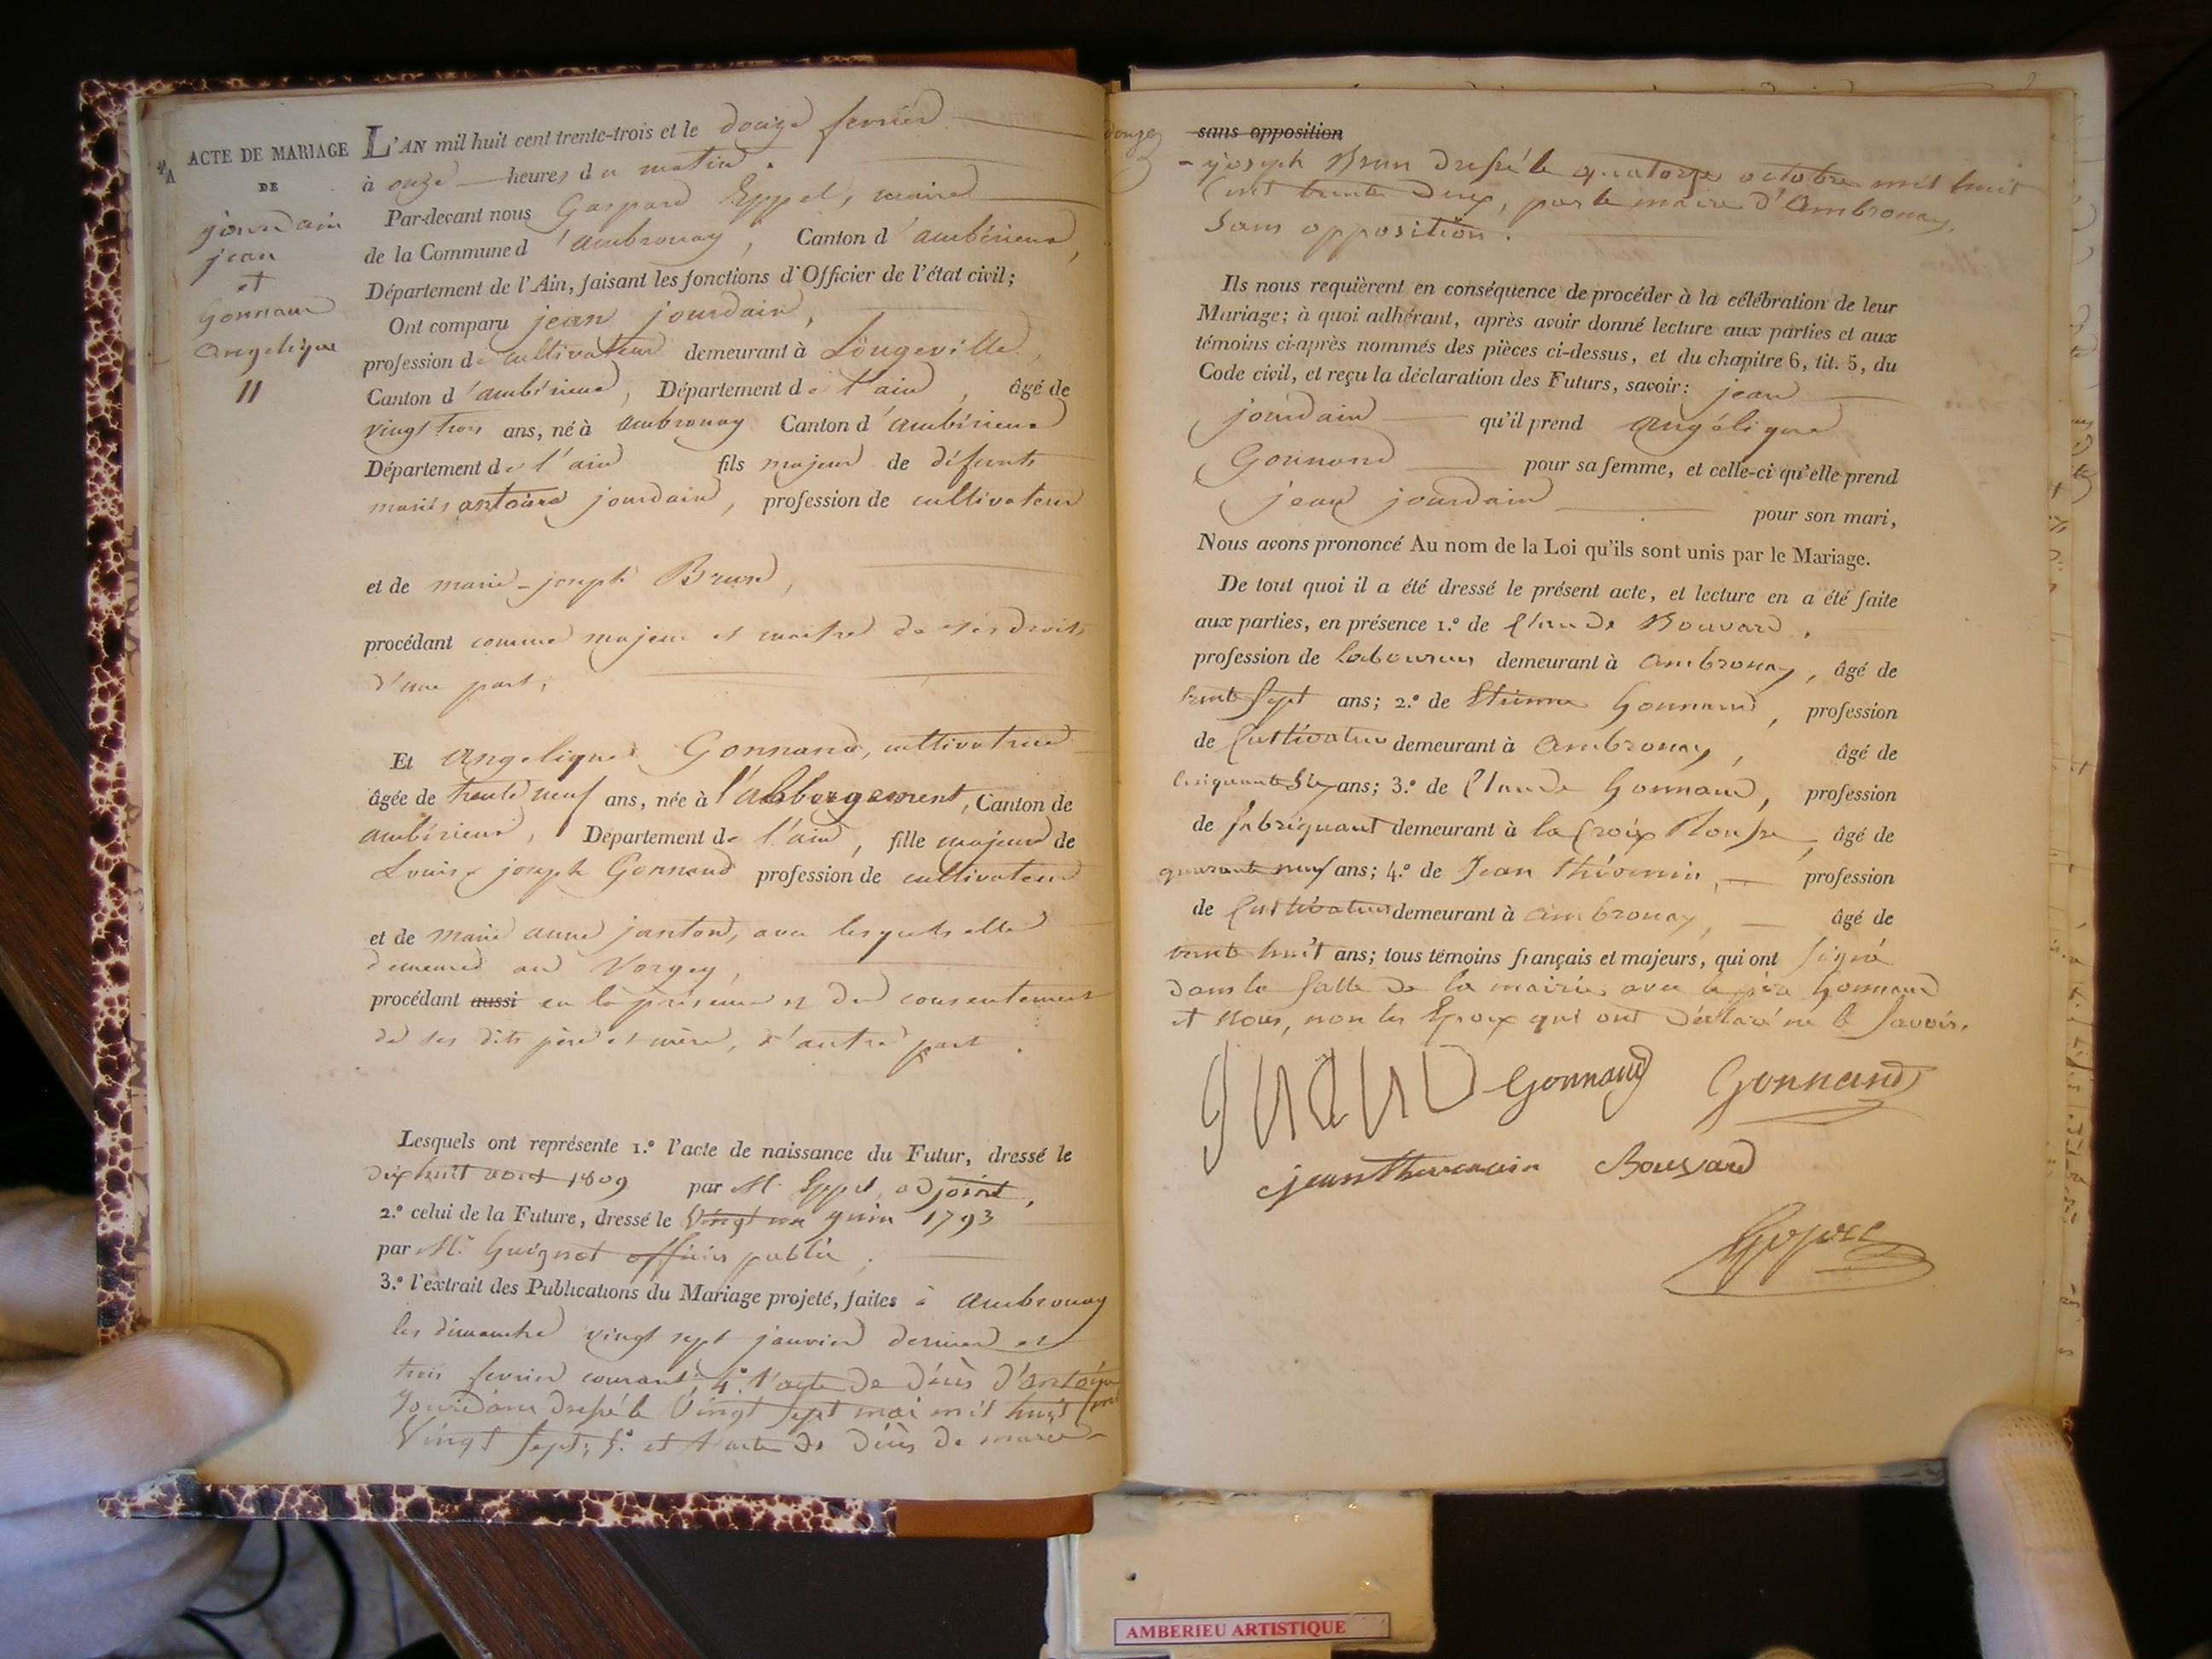 ACTE DE MARIAGE
DE
jourdain
jean
et
Gonnand
Angelique
11
L'AN mil huit cent trente-trois et le douze fevrier
à onze heures du matin.
Par-devant nous Gaspard Eppel, maire
de la Commune d'ambronay, Canton d'ambérieux,
Département de l'Ain, faisant les fonctions d'Officier de l'état civil;
Ont comparu jean jourdain,
profession de cultivateur demeurant à Longeville,
Canton d'ambérieux, Département de l'ain, âgé de
vingt trois ans, né à ambronay Canton d'ambérieux
Département de l'ain fils majeur de défunts
mariés antoine jourdain, profession de cultivateur
et de marie-joseph Brun,
procédant comme majeur et maitre de ses droits
d'une part,
Et Angelique Gonnand, cultivatrice
âgée de trente neuf ans, née à l'abbergement, Canton de
ambérieux, Département de l'ain, fille majeure de
Louis joseph Gonnand profession de cultivateur
et de marie anne janton, avec lesquels elle
demeure au Vorgey,
procédant aussi en la présence et du consentement
de ses dits père et mère, d'autre part.
Lesquels ont représente 1.º l'acte de naissance du Futur, dressé le
dix huit aout 1809 par M. Eppel, adjoint,
2.º celui de la Future, dressé le Vingt un juin 1793
par M. Guignot officier public.
3.º l'extrait des Publications du Mariage projeté, faites à ambronay
les dimanche vingt sept janvier dernier et
trois fevrier courant; 4.º l'acte de décès d'antoine
Jourdain dressé le Vingt sept mai mil huit cent
Vingt sept; 5.º et l'acte de décès de marie-
sans opposition
- joseph Brun dressé le quatorze octobre mil huit
cent trente deux, par le maire d'Ambronay,
Sans opposition.
Ils nous requièrent en conséquence de procéder à la célébration de leur
Mariage; à quoi adhérant, après avoir donné lecture aux parties et aux
témoins ci-après nommés des pièces ci-dessus, et du chapitre 6, tit. 5, du
Code civil, et reçu la déclaration des Futurs, savoir: jean
jourdain qu'il prend Angélique
Gonnand pour sa femme, et celle-ci qu'elle prend
jean jourdain pour son mari,
Nous avons prononcé Au nom de la Loi qu'ils sont unis par le Mariage.
De tout quoi il a été dressé le présent acte, et lecture en a été faite
aux parties, en présence 1.º de Claude Bouvard,
profession de Laboureur demeurant à ambronay, âgé de
trente sept ans; 2.º de Etienne Gonnand, profession
de Cultivateur demeurant à Ambronay, âgé de
Cinquante Six ans; 3.º de Claude Gonnand, profession
de fabriquant demeurant à la Croix Rousse, âgé de
quarante neuf ans; 4.º de Jean thévenin, profession
de Cultivateur demeurant à ambronay, âgé de
trente huit ans; tous témoins français et majeurs, qui ont signé
dans la Salle de la mairie avec le père Gonnand
et Nous, non les Epoux qui ont déclaré ne le Savoir.
Gonnand Gonnand
jean thevenin Bouvard
Eppel
AMBERIEU ARTISTIQUE